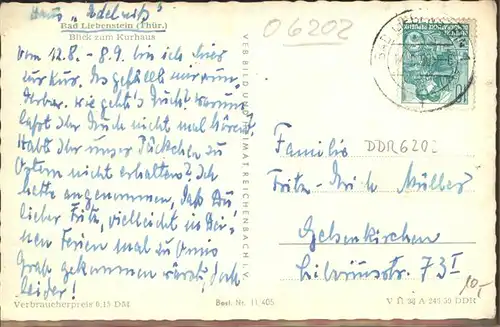 Haus "Edelweiß"
Bad Liebenstein (Thür.)
Blick zum Kurhaus
Vom 12.8. - 8.9. bin ich hier
zur Kur. Es gefällt mir wun-
derbar. Wie geht's Euch? Warum
laßt Ihr Euch nicht mal hören?
Habt Ihr unser Päckchen zu
Ostern nicht erhalten? Ich
hatte angenommen, daß Du
lieber Fritz, vielleicht in Dei-
nen Ferien mal zu Omis
Grab gekommen wärst, doch
leider!
Verbraucherpreis 0,15 DM
VEB BILD UND HEIMAT REICHENBACH I. V.
Best. Nr. 11/405
06202
10
DDR6202
Familie
Fritz-Erich Müller
Gelsenkirchen
Liboriusstr. 73 I
10,-
V 11 34 A 246/59 DDR